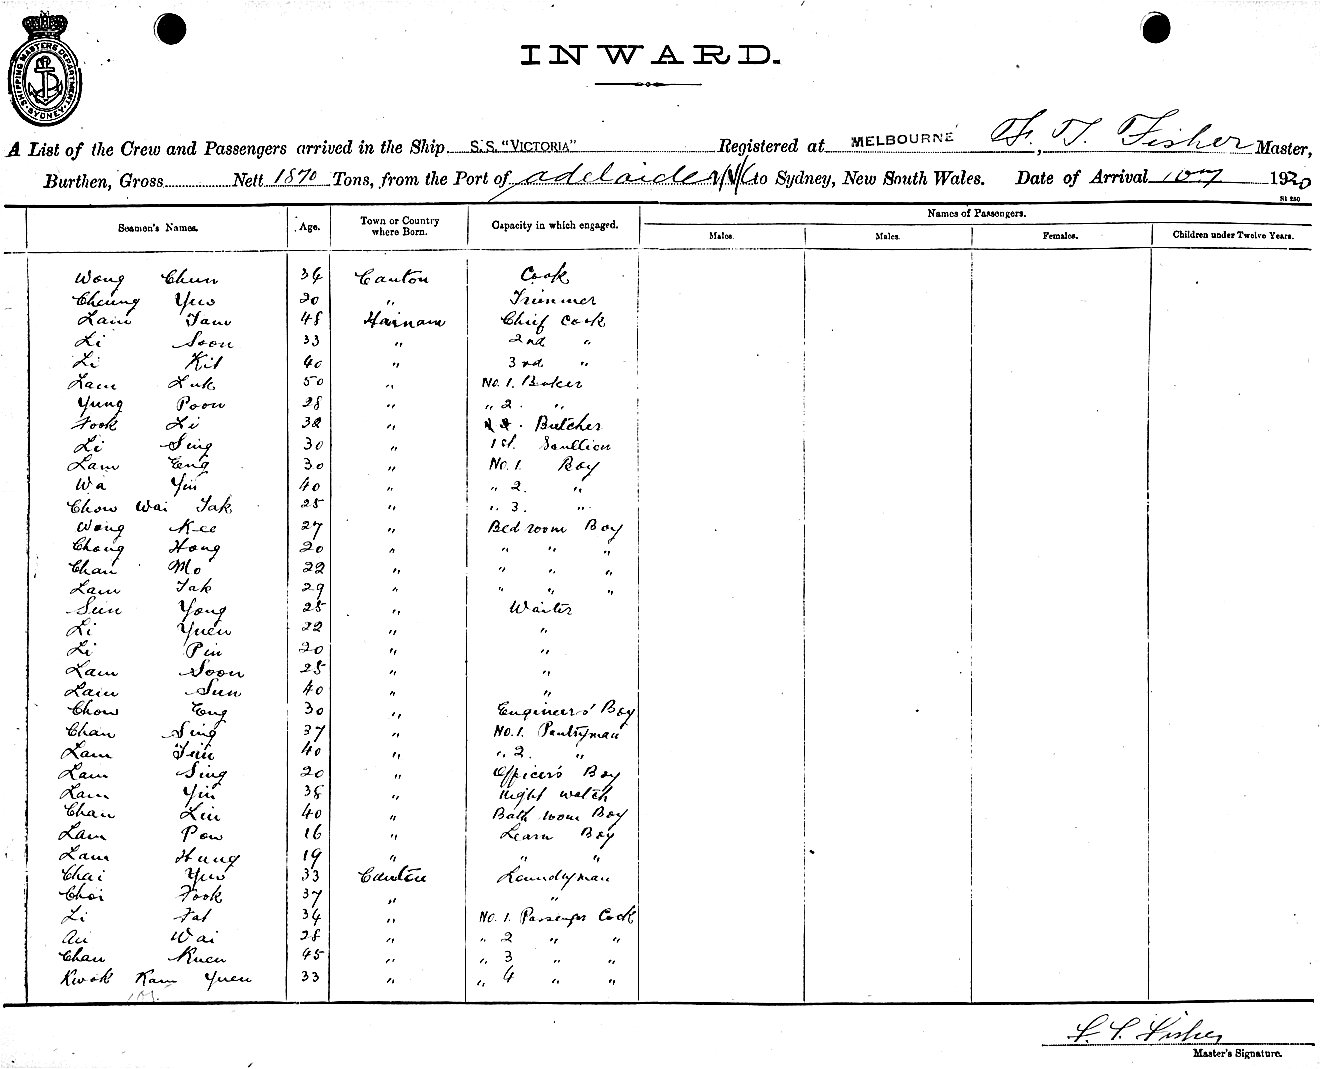 SHIPPING MASTERS DEPARTMENT SYDNEY
INWARD.
A List of the Crew and Passengers arrived in the Ship S.S. "VICTORIA" Registered at MELBOURNE F. T. Fisher Master,
Burthen, Gross Nett 1870 Tons, from the Port of Adelaide to Sydney, New South Wales. Date of Arrival 1920
Seamen's Names. Age. Town or Country where Born. Capacity in which engaged. Names of Passengers.
Males. Males. Females. Children under Twelve Years.
Wong Chun 34 Canton Cook
Cheung Yuo 20 " Trimmer
Lam Tam 48 Hainam Chief Cook
Li Soon 33 " 2nd "
Li Kit 40 " 3rd "
Lam Luk 50 " No. 1. Baker
Yung Poon 28 " " 2. "
Fook Li 32 " Butcher
Li Sing 30 " 1st. Scullion
Lam Eng 30 " No. 1. Boy
Wa Yin 40 " " 2. "
Chow Wai Tak 25 " " 3. "
Wong Kee 27 " Bed room Boy
Chong Hong 20 " " " "
Chan Mo 22 " " " "
Lam Tak 29 " " " "
Sun Yong 25 " Waiter
Li Yuen 22 " "
Li Pin 20 " "
Lam Soon 25 " "
Lam Sun 40 " "
Chow Eng 30 " Engineers' Boy
Chan Sing 37 " No. 1. Pantryman
Lam Tim 40 " " 2. "
Lam Sing 20 " Officer's Boy
Lam Yin 38 " Night watch
Chan Lin 40 " Bath room Boy
Lam Pow 16 " Learn Boy
Lam Hung 19 " " "
Chai Yuo 33 Canton Laundryman
Choi Fook 37 " "
Li Fat 34 " No. 1. Passenger Cook
Au Wai 28 " " 2 " "
Chan Kuen 45 " " 3 " "
Kwok Kam Yuen 33 " " 4 " "
F. T. Fisher
Master's Signature.